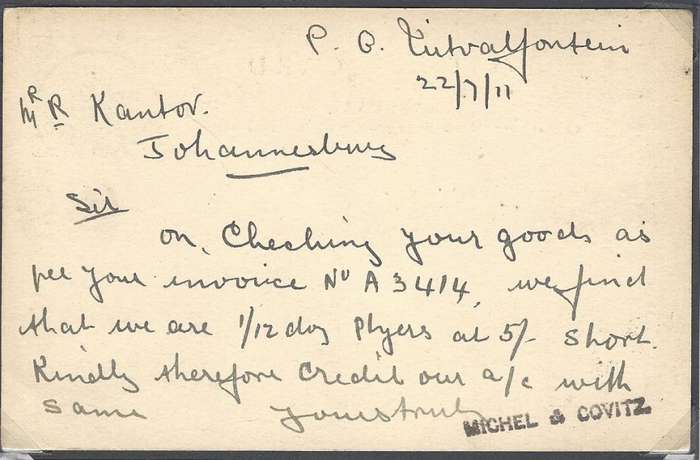 P. O. Uitvalfontein
22/7/11
Mr R Kantor.
Johannesburg
Sir
on, Checking your goods as
per your invoice No A 3414, we find
that we are 1/12 doz Plyers at 5/- short.
Kindly therefore Credit our a/c with
same yours truly
MICHEL & COVITZ.